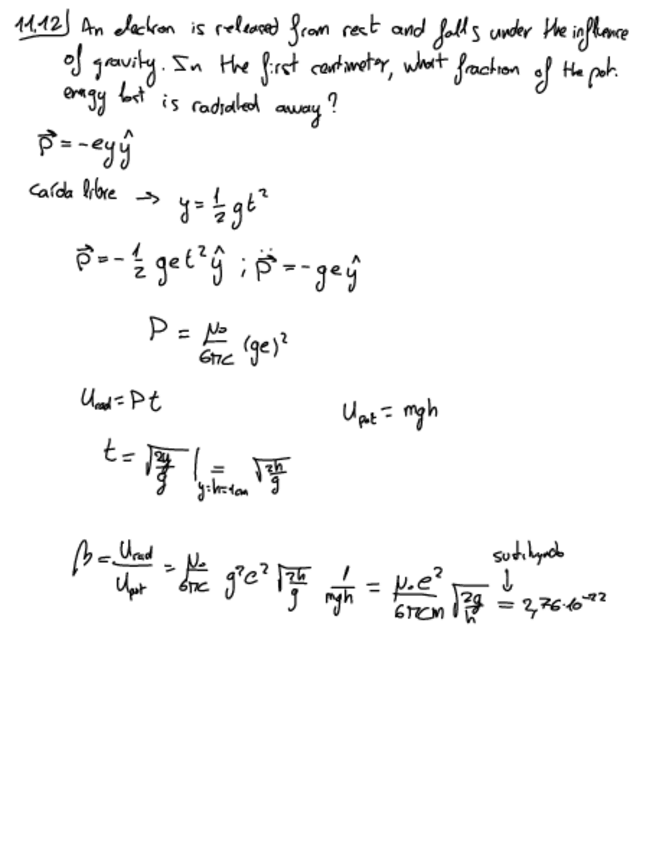 11.12) An electron is released from rest and falls under the influence
of gravity. In the first centimeter, what fraction of the pot.
energy lost is radiated away?
p⃗ = -eyŷ
Caída libre → y = 1/2 gt²
p⃗ = - 1/2 get²ŷ ; p̈⃗ = -geŷ
P = μ₀/6πc (ge)²
U_rad = Pt U_pot = mgh
t = √(2y/g) |_{y=h=1cm} = √(2h/g)
β = U_rad/U_pot = μ₀/6πc g²e² √(2h/g) 1/mgh = μ₀e²/6πcm √(2g/h) = 2,76·10⁻²²